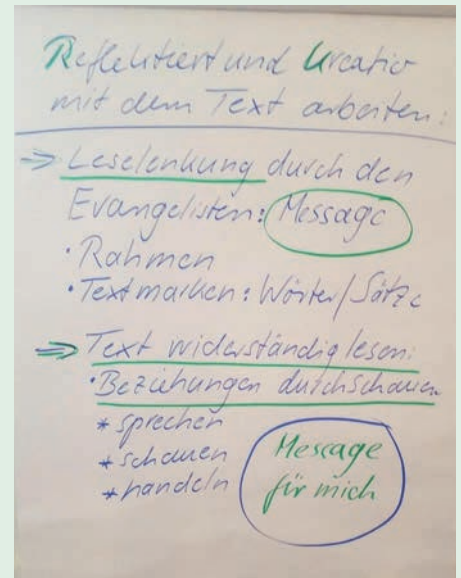 Reflektiert und Kreativ
mit dem Text arbeiten:
⇒ Leselenkung durch den
Evangelisten: Message
• Rahmen
• Textmarken: Wörter/Sätze
⇒ Text widerständig lesen:
• Beziehungen durchschauen
* sprechen
* schauen
* handeln
Message
für mich